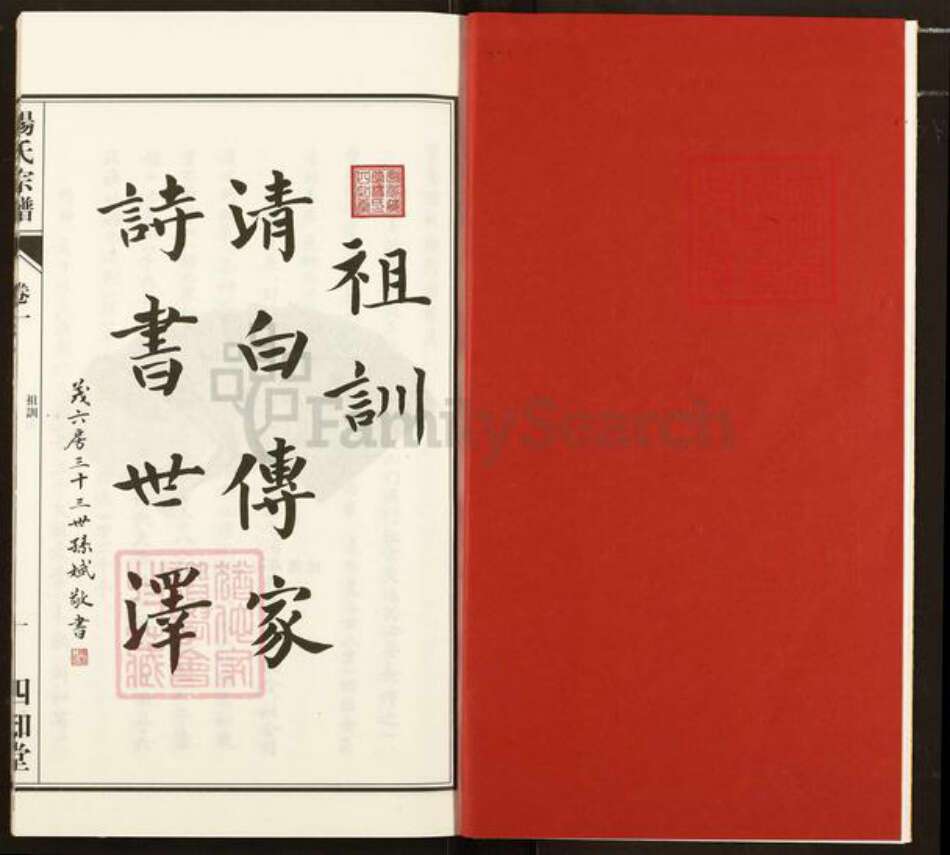 祖訓
清白傳家
詩書世澤
茂六房三十三世孫斌敬書
楊氏宗譜
卷一
祖訓
一
四印堂
FamilySearch